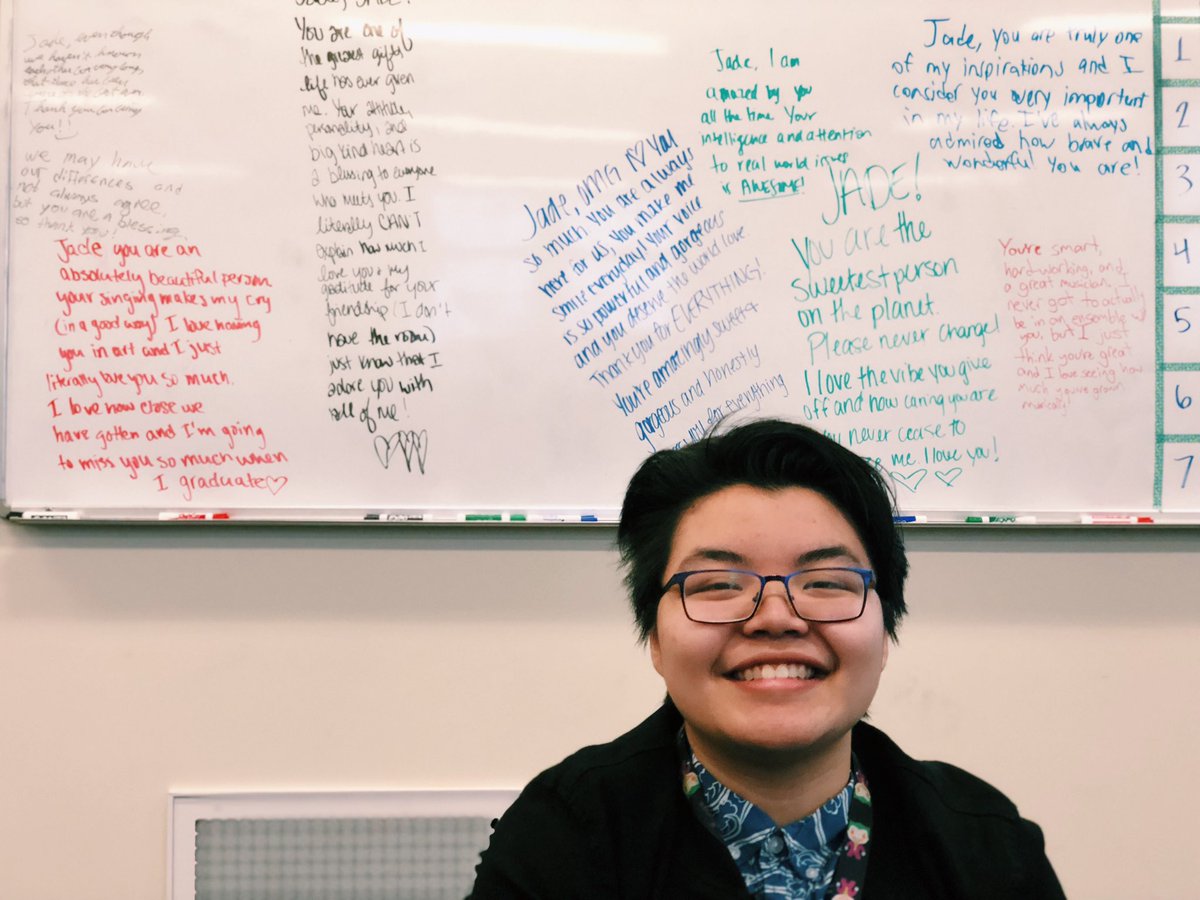 Jade, even though
we haven't known
each other long
I
YOU!:)
we may have
our differences and
not always agree,
but you are a blessing,
so thank you!
Jade you are an
absolutely beautiful person
your singing makes my cry
(in a good way) I love hearing
you in art and I just
literally love you so much.
I love how close we
have gotten and I'm going
to miss you so much when
I graduate♡
You are one of
the greatest gifts
life has ever given
me. Your attitude,
personality, and
big kind heart is
a blessing to everyone
who meets you. I
literally CAN'T
explain how much I
love you & my
gratitude for your
friendship (I don't
have the room)
just know that I
adore you with
all of me!
♡♡♡
Jade, OMG I ♡ You
so much you are always
here for us, you make me
smile everyday! Your voice
is so powerful and gorgeous
and you deserve the world love
Thank you for EVERYTHING!
You're amazingly sweet &
gorgeous and honestly
you for everything
Jade, I am
amazed by you
all the time. Your
intelligence and attention
to real world issues
is AWESOME!
JADE!
You are the
sweetest person
on the planet.
Please never change!
I love the vibe you give
off and how caring you are
you never cease to
me. I love you!
♡ ♡
Jade, you are truly one
of my inspirations and I
consider you very important
in my life. I've always
admired how brave and
wonderful you are!
You're smart,
hard-working, and
a great musician. I
never got to actually
be in an ensemble w/
you, but I just
think you're great
and I love seeing how
much you've grown
musically!
1
2
3
4
5
6
7